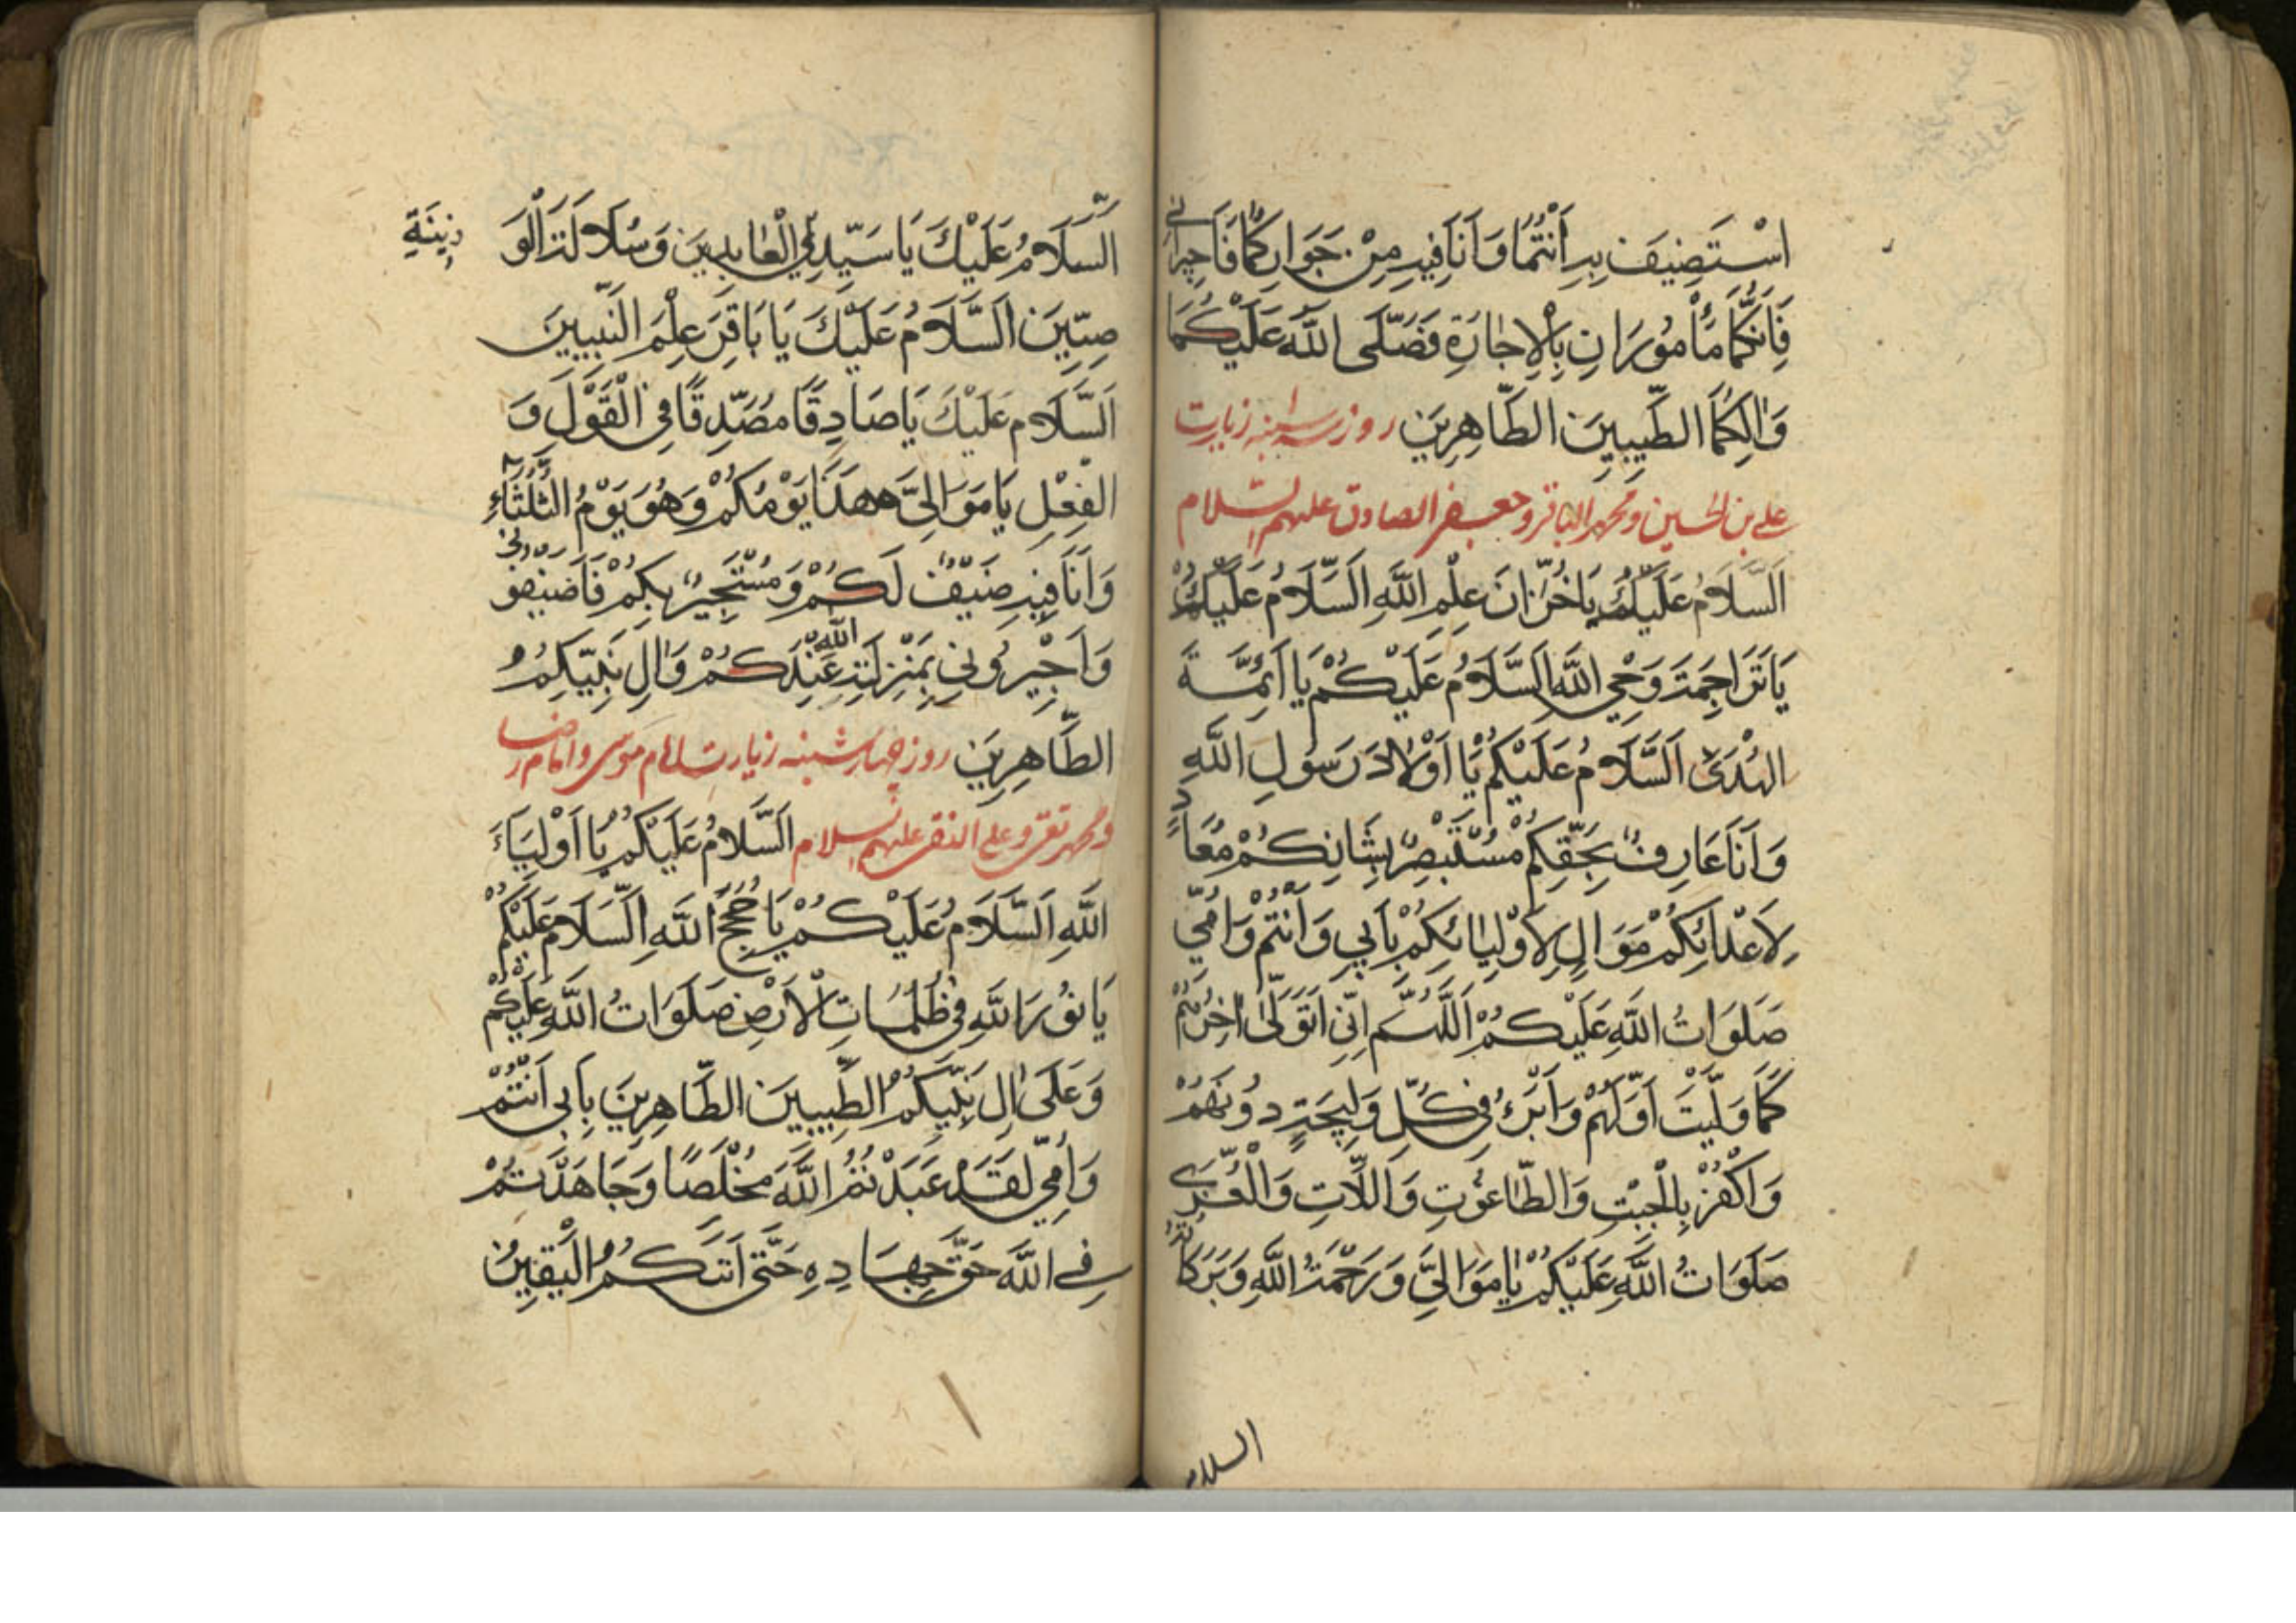 اسْتَضِيفَ بِهِ أَنْتُمَا وَأَنَا فِيهِ مِنْ جَوَارِكُمَا فَأَجِيرَانِي
فَإِنَّكُمَا مَأْمُورَانِ بِالْإِجَارَةِ فَصَلَّى اللَّهُ عَلَيْكُمَا
وَآلِكُمَا الطَّيِّبِينَ الطَّاهِرِينَ روز سه شنبه زیارت
علي بن الحسين و محمد الباقر و جعفر الصادق عليهم السلام
اَلسَّلَامُ عَلَيْكُمْ يَا خُزَّانَ عِلْمِ اللَّهِ اَلسَّلَامُ عَلَيْكُمْ
يَا تَرَاجِمَةَ وَحْيِ اللَّهِ اَلسَّلَامُ عَلَيْكُمْ يَا أَئِمَّةَ
الْهُدَى اَلسَّلَامُ عَلَيْكُمْ يَا أَوْلَادَ رَسُولِ اللَّهِ
وَأَنَا عَارِفٌ بِحَقِّكُمْ مُسْتَبْصِرٌ بِشَانِكُمْ مُعَادٍ
لِأَعْدَائِكُمْ مَوَالٍ لِأَوْلِيَائِكُمْ بِأَبِي وَأَنْتُمْ وَأُمِّي
صَلَوَاتُ اللَّهِ عَلَيْكُمْ اَللَّهُمَّ إِنِّي أَتَوَلَّى اٰخِرَهُمْ
كَمَا وَلَّيْتَ أَوَّلَهُمْ وَأَبْرَءُ فِي كُلِّ وَلِيجَةٍ دُونَهُمْ
وَأَكْفُرْ بِالْجِبْتِ وَالطَّاغُوتِ وَاللَّاتِ وَالْعُزَّى
صَلَوَاتُ اللَّهِ عَلَيْكُمْ يَا مَوَالِيَّ وَرَحْمَةُ اللَّهِ وَبَرَكَاتُهُ
السلام
اَلسَّلَامُ عَلَيْكَ يَا سَيِّدِي الْعَابِدِينَ وَسُلَالَةَ الْوَ
صِيِّينَ اَلسَّلَامُ عَلَيْكَ يَا بَاقِرَ عِلْمِ النَّبِيِّينَ
اَلسَّلَامُ عَلَيْكَ يَا صَادِقًا مُصَدِّقًا فِي الْقَوْلِ وَ
الْفِعْلِ يَا مَوَالِيَّ هَذَا يَوْمُكُمْ وَهُوَ يَوْمُ الثَّلَثَاءِ
وَأَنَا فِيهِ ضَيْفٌ لَكُمْ وَمُسْتَجِيرٌ بِكُمْ فَأَضِيفُونِي
وَأَجِيرُونِي بِمَنْزِلَةِ اللَّهِ عِنْدَكُمْ وَآلِ نَبِيِّكُمْ
الطَّاهِرِينَ روز چهارشنبه زیارت امام موسی و امام رضا
و محمد تقی و علی النقی علیهم السلام اَلسَّلَامُ عَلَيْكُمْ يَا أَوْلِيَاءَ
اللَّهِ اَلسَّلَامُ عَلَيْكُمْ يَا حُجَجَ اللَّهِ اَلسَّلَامُ عَلَيْكُمْ
يَا نُورَ اللَّهِ فِي ظُلُمَاتِ الْأَرْضِ صَلَوَاتُ اللَّهِ عَلَيْكُمْ
وَعَلَى اٰلِ نَبِيِّكُمْ الطَّيِّبِينَ الطَّاهِرِينَ بِأَبِي أَنْتُمْ
وَأُمِّي لَقَدْ عَبَدْتُمُ اللَّهَ مُخْلَصًا وَجَاهَدْتُمْ
فِي اللَّهِ حَقَّ جِهَادِهِ حَتَّى أَتَٰكُمُ الْيَقِينُ